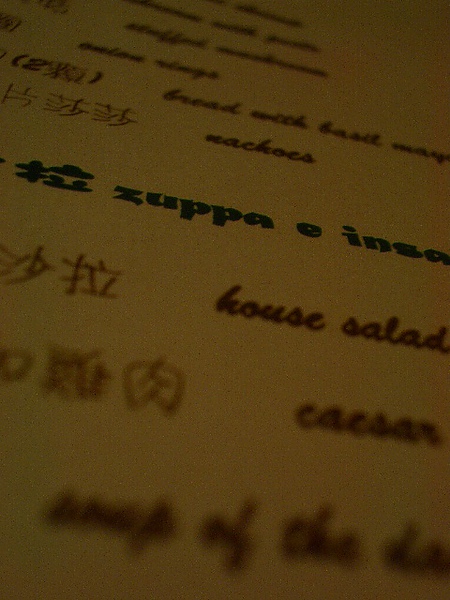 with
stuffed mushroom
onion rings
(2顆) bread with basil may
片莎莎 nachoes
拉 zuppa e insa
沙拉 house salad
雞肉 caesar
soup of the da